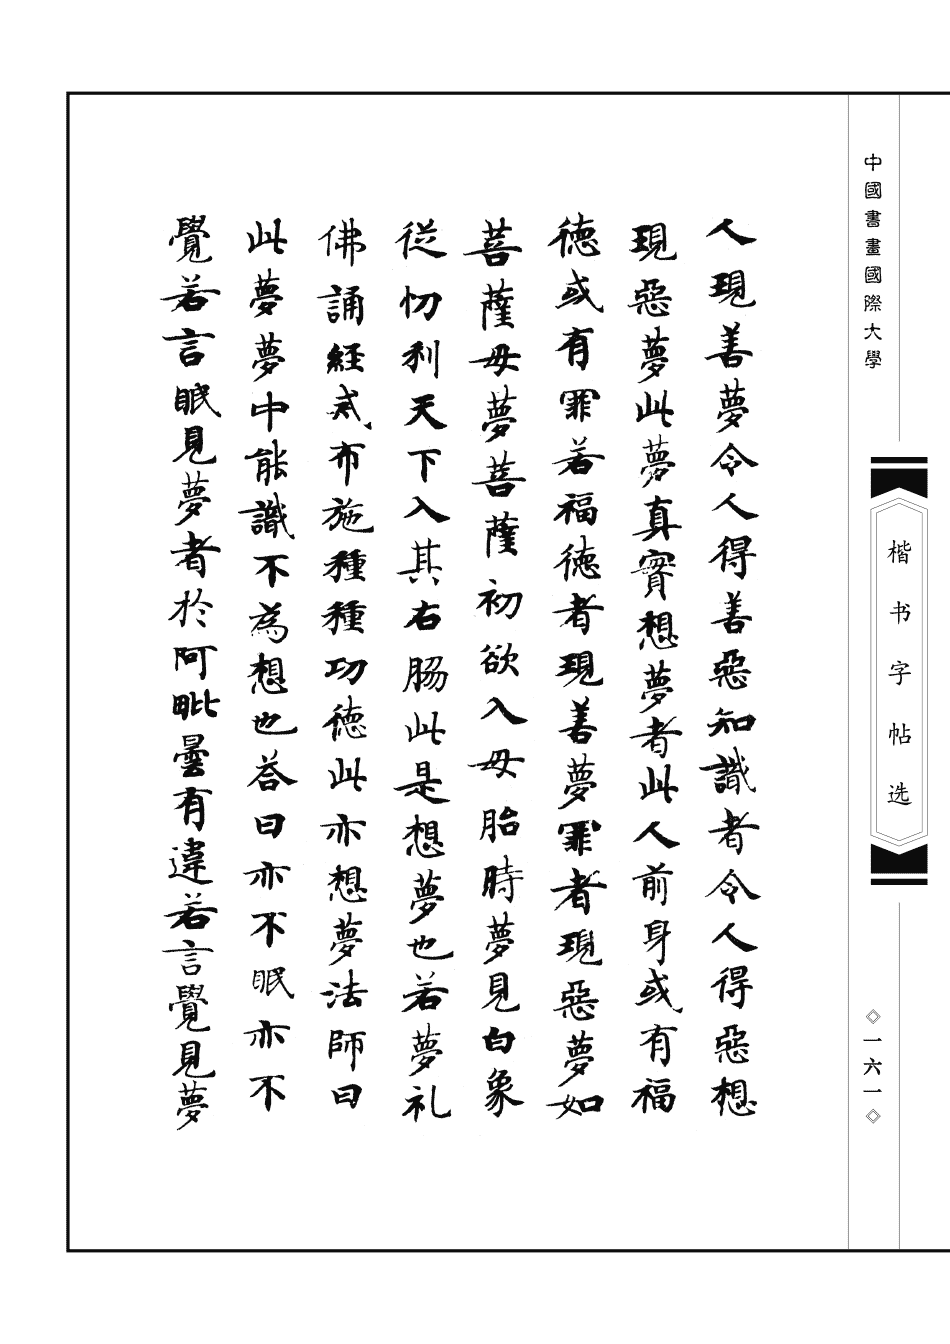 中國書畫國際大學
楷书字帖选
◇一六一◇
人現善夢令人得善惡知識者令人得惡想
現惡夢此夢真實想夢者此人前身或有福
德或有罪若福德者現善夢罪者現惡夢如
菩薩母夢菩薩初欲入母胎時夢見白象
從忉利天下入其右肠此是想夢也若夢礼
佛誦經贰布施種種功德此亦想夢法師曰
此夢夢中能識不為想也荅曰亦不眠亦不
覺若言眠見夢者於阿毗曇有違若言覺見夢